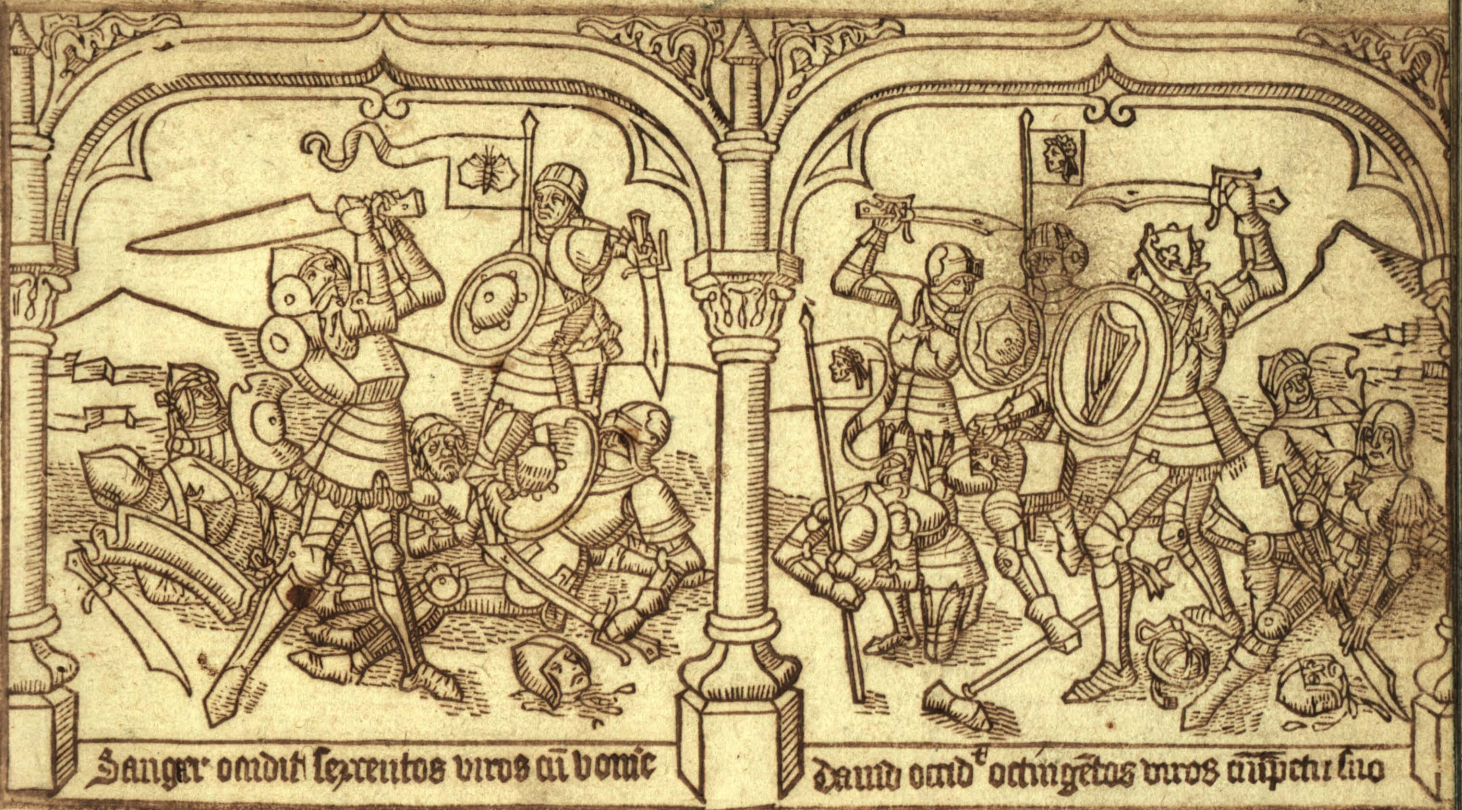 Sangar occidit sexcentos viros cū vomie
david occidᵗ octingētos viros cū īpetu suo